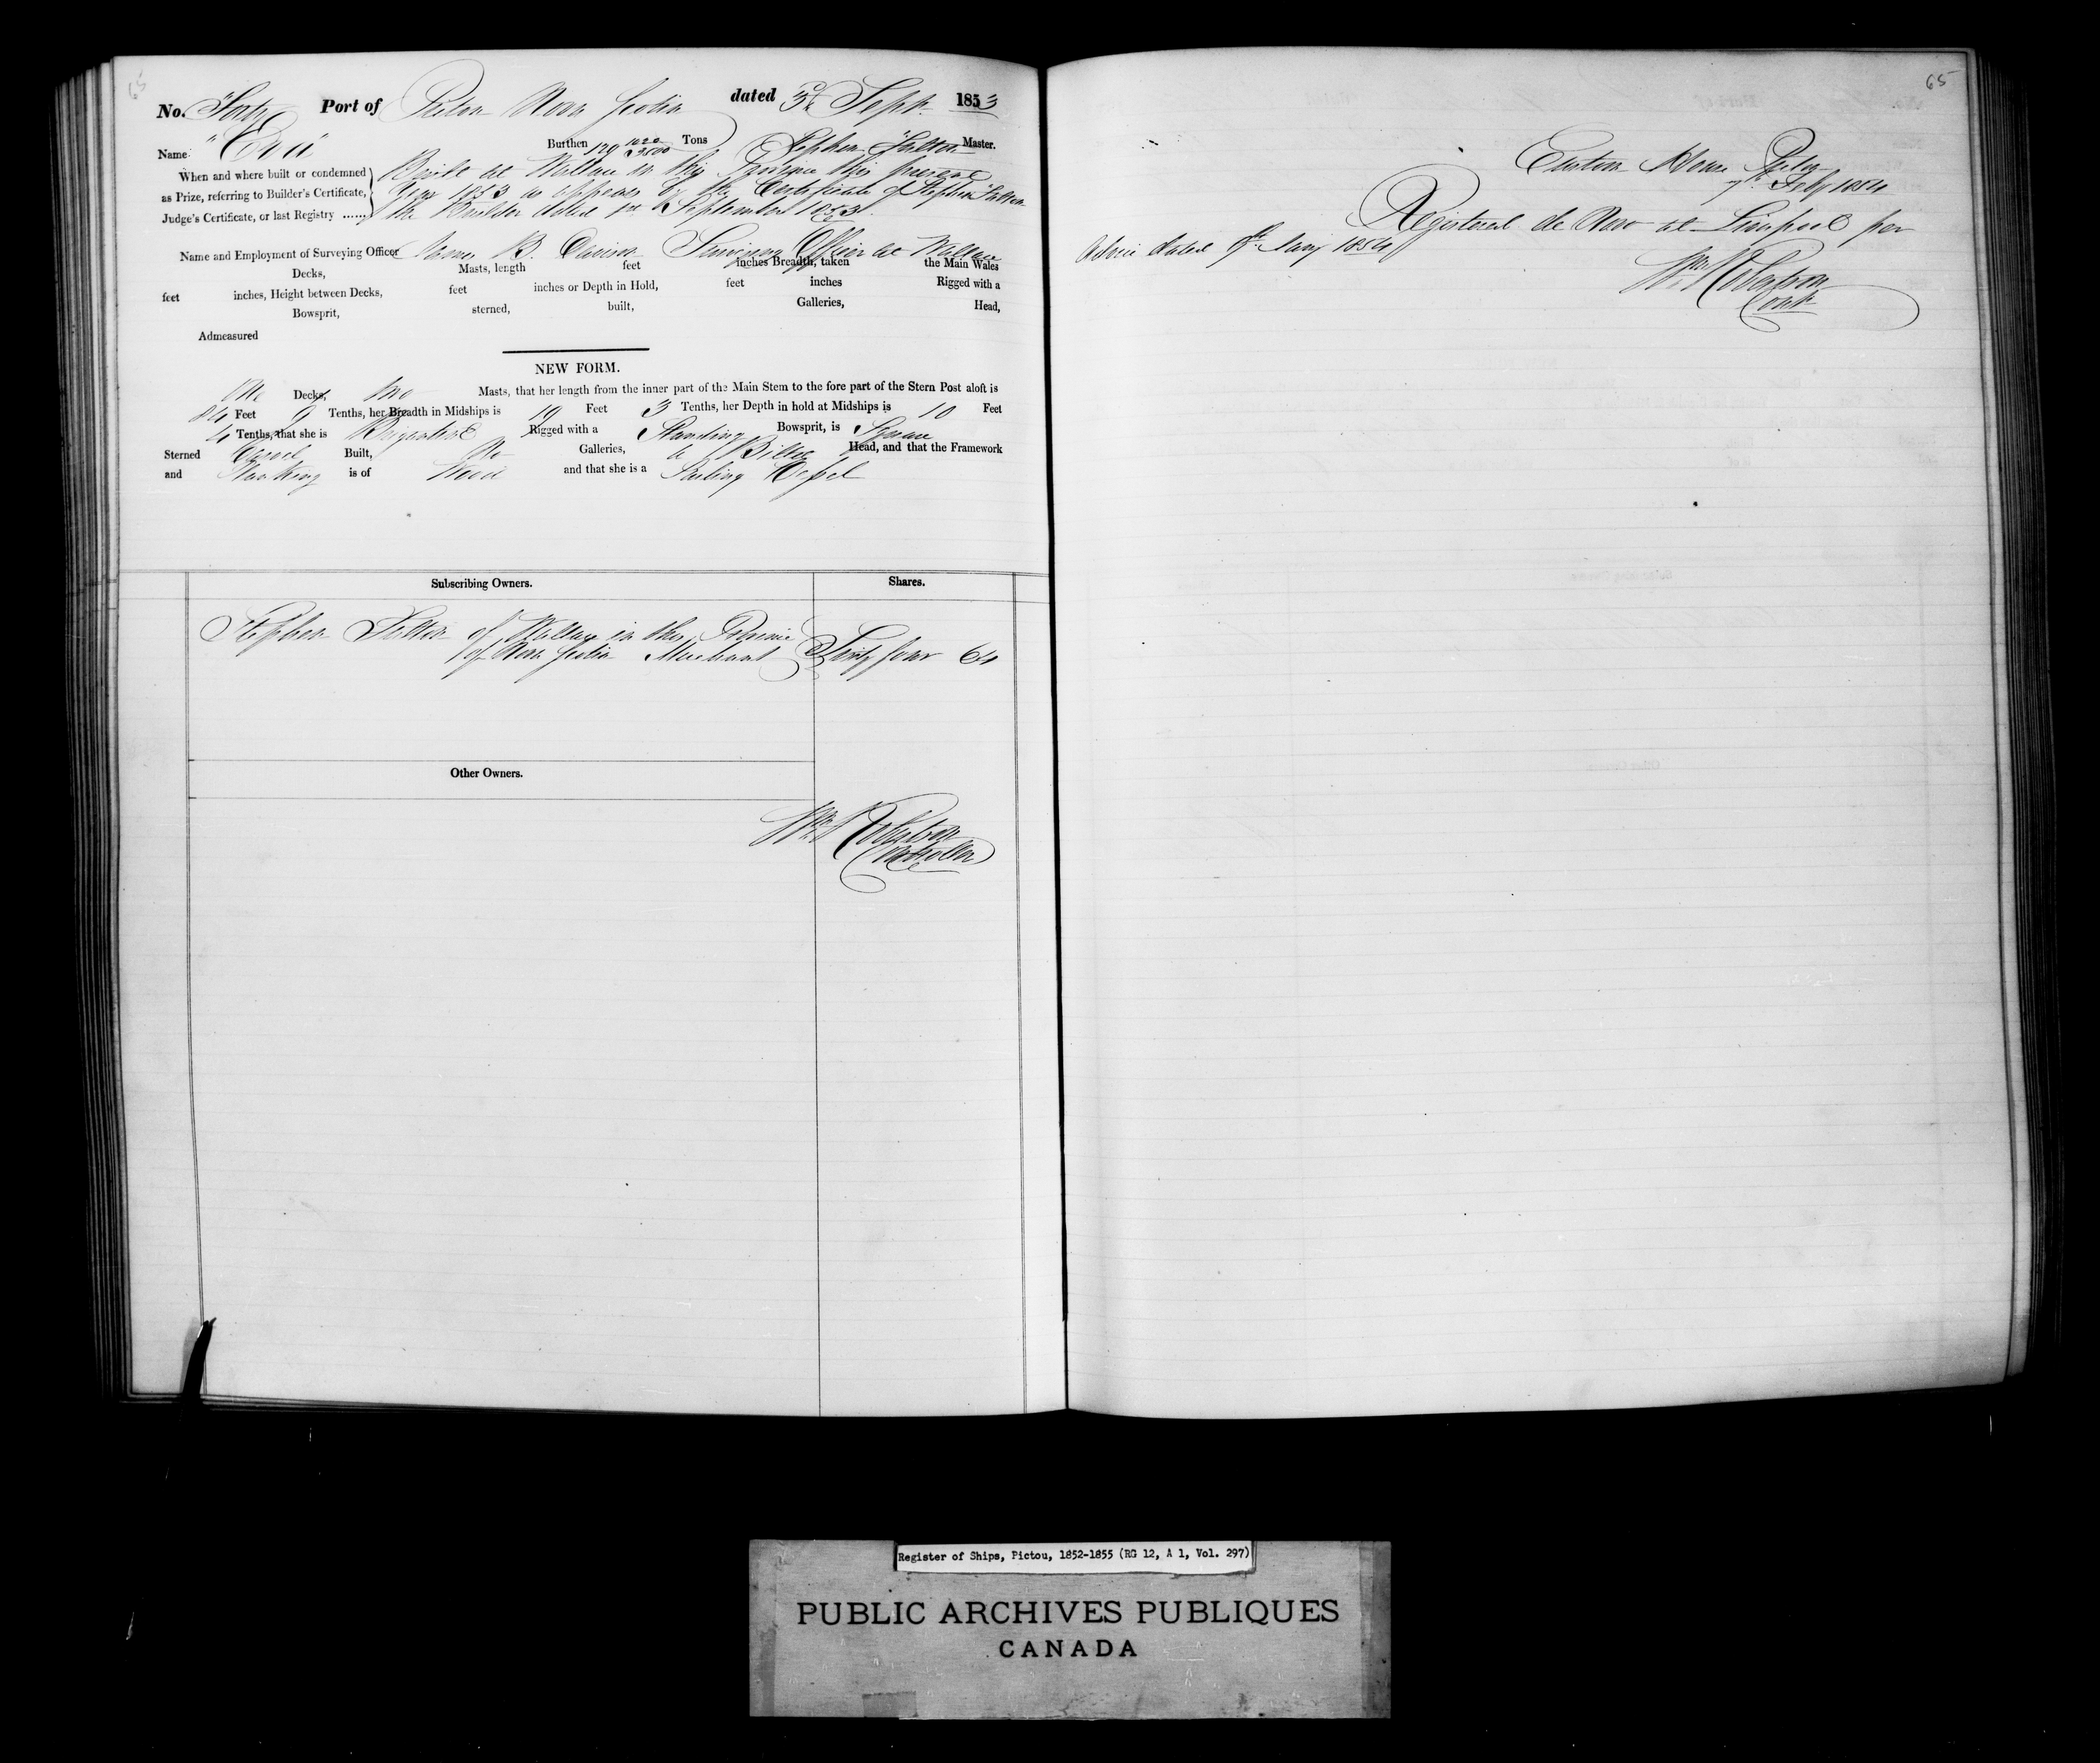 65
No. Forty Port of Pictou Nova Scotia dated 3d Sept. 1853
Name "Eva" Burthen 129 1020/3500 Tons Stephen Fulton Master.
When and where built or condemned Built at Wallace in this Province this present
as Prize, referring to Builder's Certificate, Year 1853 as appears by the Certificate of Stephen Fulton
Judge's Certificate, or last Registry ...... the Builder dated 1st September 1853.
Name and Employment of Surveying Officer James B. Davison Surveying Officer at Wallace
Decks, Masts, length feet inches Breadth, taken the Main Wales
feet inches, Height between Decks, feet inches or Depth in Hold, feet inches Rigged with a
Bowsprit, sterned, built, Galleries, Head,
Admeasured
NEW FORM.
One Decks, two Masts, that her length from the inner part of the Main Stem to the fore part of the Stern Post aloft is
84 Feet 9 Tenths, her Breadth in Midships is 19 Feet 3 Tenths, her Depth in hold at Midships is 10 Feet
4 Tenths, that she is Brigantine Rigged with a Standing Bowsprit, is Square
Sterned Carvel Built, No Galleries, a Billet Head, and that the Framework
and Planking is of Wood and that she is a Sailing Vessel
Subscribing Owners. Shares.
Stephen Fulton of Wallace in the Province
of Nova Scotia Merchant Sixty four 64
Other Owners.
Wm Robertson
Controller
65
Custom House Pictou
7th Feby 1854
Registered de Novo at Liverpool per
Advice dated Jany 1854
Wm Robertson
Contr
Register of Ships, Pictou, 1852-1855 (RG 12, A 1, Vol. 297)
PUBLIC ARCHIVES PUBLIQUES
CANADA